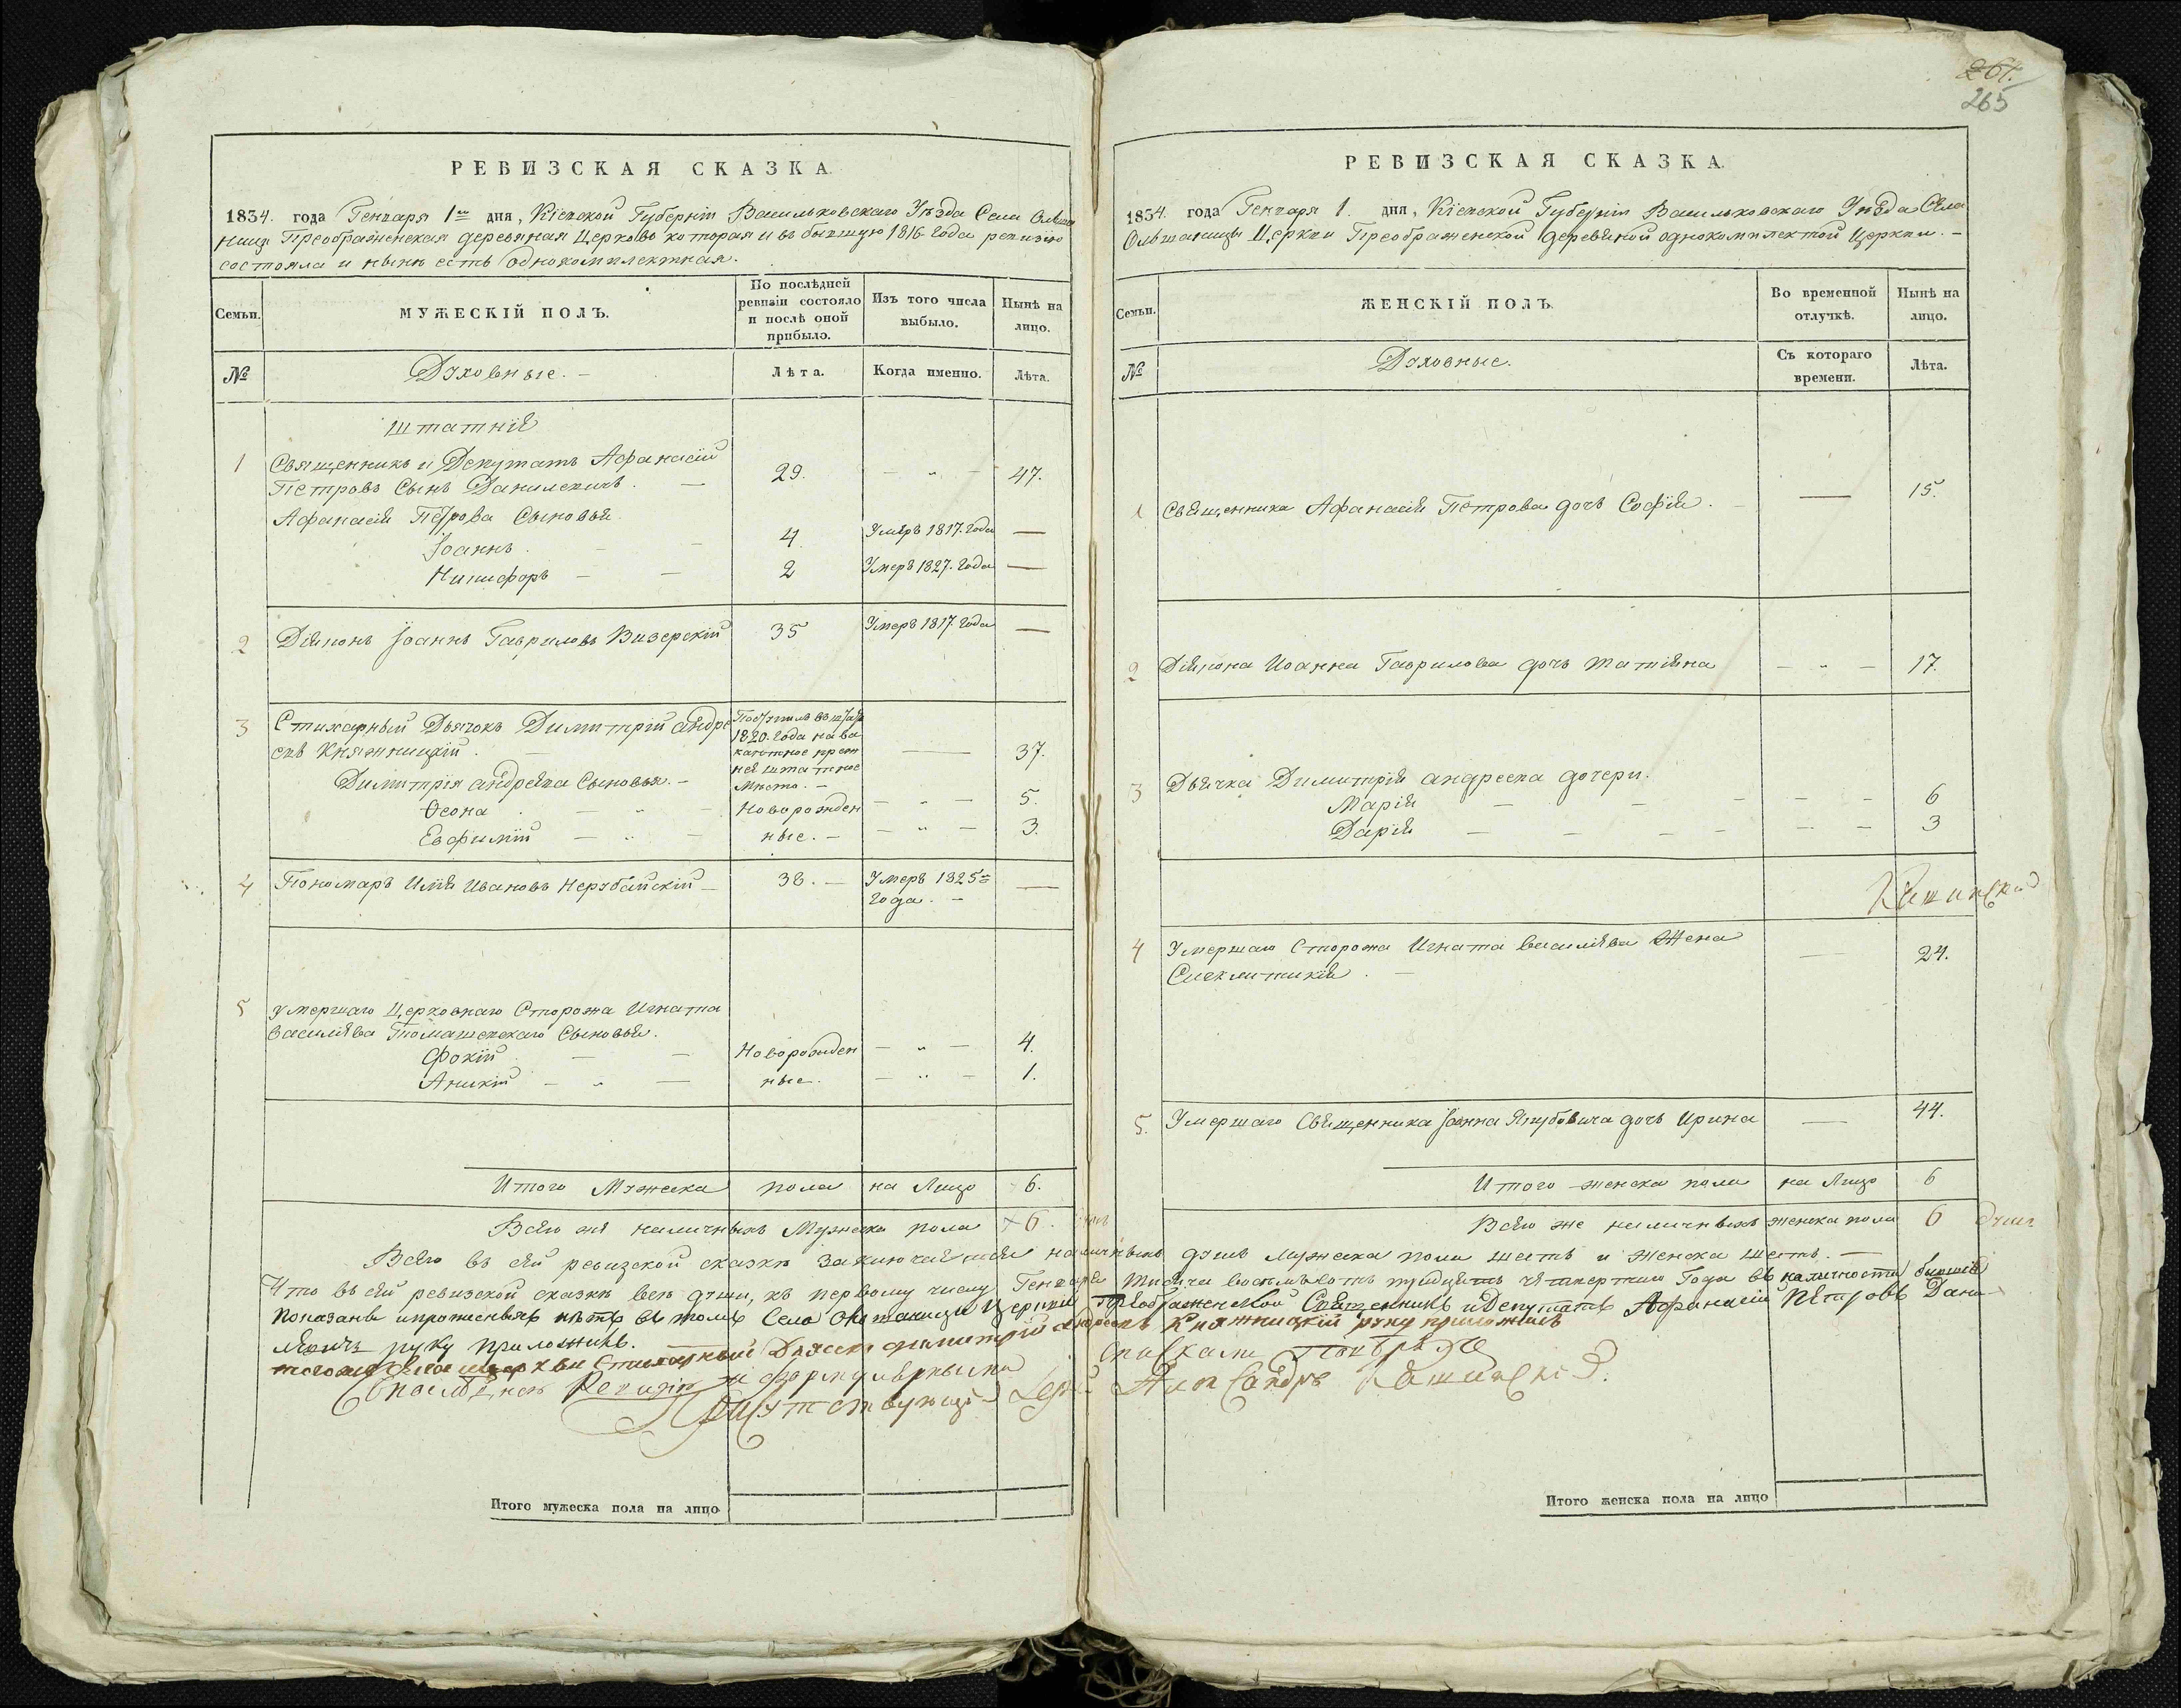 РЕВИЗСКАЯ СКАЗКА.
1834. года Генваря 1го дня, Кіевской Губерніи Васильковскаго Уѣзда Села Ольша
ницы Преображенская деревяная Церковь которая и въ бывшую 1816 года ревизію
состояла и нынѣ есть однокомплектная.
Семьи.
МУЖЕСКІЙ ПОЛЪ.
По послѣдней ревизіи состояло и послѣ оной прибыло.
Изъ того числа выбыло.
Нынѣ на лицо.
№
Духовные. —
Лѣта.
Когда именно.
Лѣта.
Штатніе
1 Священникъ и Депутатъ Афанасій
Петровъ Сынъ Данилевичъ. — 29. — „ — 47.
Афанасія Петрова Сыновья
Іоаннъ. — — 4 Умеръ 1817. Года —
Никифоръ — — 2 Умеръ 1827. Года —
2 Діяконъ Іоаннъ Гавриловъ Визерскій 35 Умеръ 1817. Года —
3 Стихарный Дьячокъ Димитрій Андре
евъ Княжницкій. — 37.
Поступилъ въ штатъ
1820. Года на ва
кантное преж
нея штатное
Мѣсто. —
Димитрія Андреева Сыновья. —
Ѳеона — „ — Новорожден — „ — 5.
Евфимій — „ — ные. — — „ — 3.
4 Пономарь Илія Ивановъ Нерубайскій — 38. — Умеръ 1825го —
Года. —
5 Умершаго Церковнаго Сторожа Игната
Василіева Томашевскаго Сыновья.
Фокій — — Новорожден — „ — 4.
Аникій — „ — ные. — „ — 1.
Итого Мужеска пола на Лицо 6.
Всего же наличныхъ Мужеска пола 6.
Итого мужеска пола на лицо
264.
265
РЕВИЗСКАЯ СКАЗКА.
1834. года Генваря 1. дня, Кіевской Губерніи Васильковскаго Уѣзда Села
Ольшаницы Церкви Преображенской деревяной однокомплектой Церкви. —
Семьи.
ЖЕНСКІЙ ПОЛЪ.
Во временной отлучкѣ.
Нынѣ на лицо.
№
Духовные.
Съ котораго времени.
Лѣта.
1 Священника Афанасія Петрова дочь Софія. — — 15.
2 Діякона Иоанна Гаврилова дочь Татіяна — „ — 17.
3 Дьячка Димитрія Андреева дочери.
Марія — — — — — 6
Дарія — — — — — — 3
Кашинскій
4 Умершаго Сторожа Игната Василіева Жена — 24.
Синклитикія. —
5. Умершаго Священника Іоанна Якубовича дочь Ирина — 44.
Итого женска пола на Лицо 6
Всего же наличныхъ женска пола 6 душъ
Всего въ сей ревизской сказкѣ заключается наличныхъ душъ мужеска пола шесть и женска шесть. —
Что въ сей ревизской сказкѣ всѣ души, къ первому числу Генваря тысяча восемьсотъ тридцать четвертаго Года въ наличности бывшіе
показаны и прописныхъ нѣтъ въ томъ Села Ольшаницы Церкви Преображенской Священникъ и Депутатъ Афанасій Петровъ Дани
левичъ руку приложилъ.
того же Села церкви Стихарный Дьячокъ Димитрій Андреевъ Княжницкій руку приложилъ
Присутствующій Александръ Кашинскій.
Итого женска пола на лицо